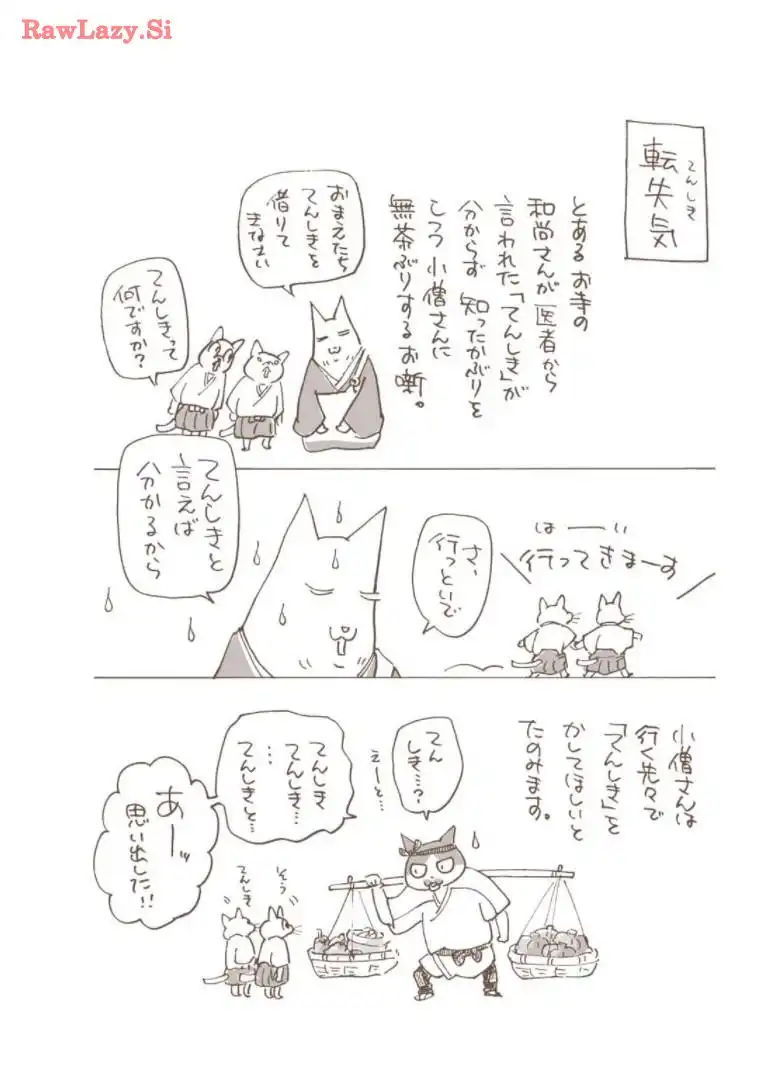 RawLazy.Si
転失気
てんしき
とあるお寺の
和尚さんが医者から
言われた「てんしき」が
分からず知ったかぶりを
しつつ小僧さんに
無茶ぶりするお噺。
おまえたち
てんしきを
借りて
きなさい
てんしきって
何ですか？
はーい
行ってきまーす
さ、
行っといで
てんしきと
言えば
分かるから
小僧さんは
行く先々で
「てんしき」を
かしてほしいと
たのみます。
てん
しき…？
えーと…
てんしき
てんしき…
…
てんしきと…
あーッ
思い出した!!
そう
てんしき